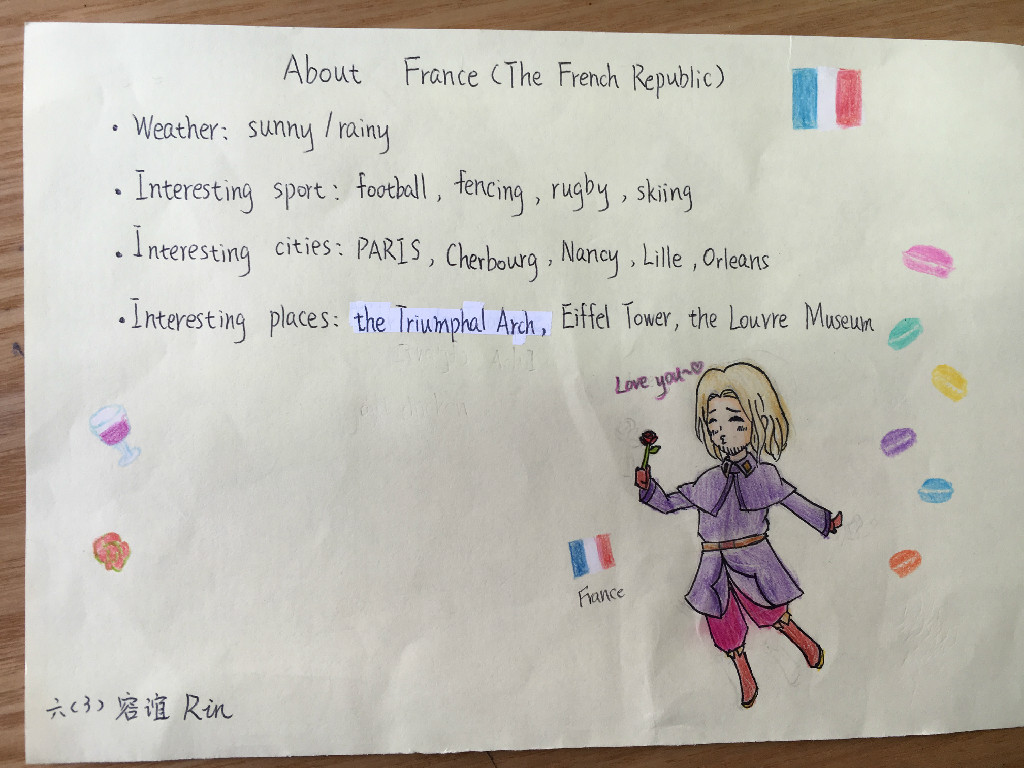 About France (The French Republic)
• Weather: sunny / rainy
• Interesting sport: football, fencing, rugby, skiing
• Interesting cities: PARIS, Cherbourg, Nancy, Lille, Orleans
• Interesting places: the Triumphal Arch, Eiffel Tower, the Louvre Museum
Love you~♡
France
六(3) 容谊 Rin